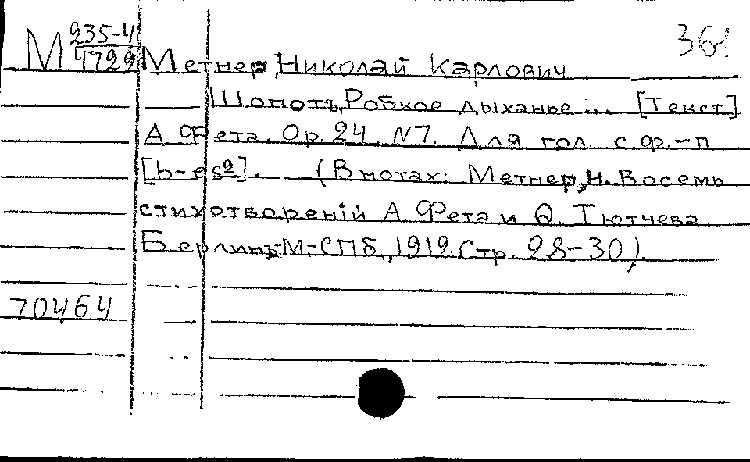 М 235-4/4729 Метнер, Николай Карлович 36!
Шопотъ, Робкое дыханье... [Текст]
А. Фета. Op. 24, N7. Для гол. с ф.-п.
[b-es²]. (В нотах: Метнер, Н. Восемь
стихотворений А. Фета и Ѳ. Тютчева
Берлинъ-М-СПБ, 1912. Стр. 28-30).
70464